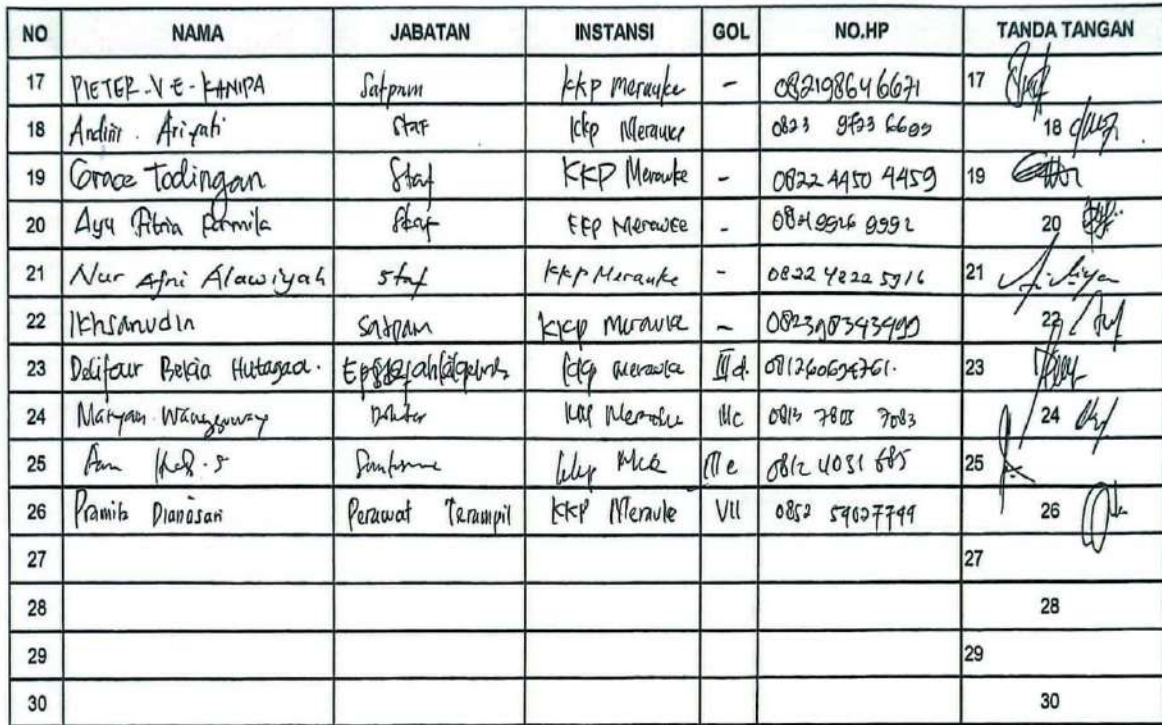 NO NAMA JABATAN INSTANSI GOL NO.HP TANDA TANGAN
17 PIETER-V E-KANIPA Satpam KKP Merauke - 082198646671 17
18 Andini Ariyati Staf KKP Merauke 0823 9723 6699 18
19 Grace Todingan Staf KKP Merauke - 0822 4450 4459 19
20 Ayu Fitria Permila Staf KKP Merauke - 20
21 Nur Afni Alawiyah Staf KKP Merauke - 0822 4822 5916 21
22 Ikhsanudin Satpam KKP Merauke - 22
23 KKP Merauke III d. 23
24 Maryam Dokter KKP Merauke IIIc 0813 7803 7083 24
25 0812 4031 685 25
26 Pramita Dianasari Perawat Terampil KKP Merauke VII 0852 59027749 26
27 27
28 28
29 29
30 30